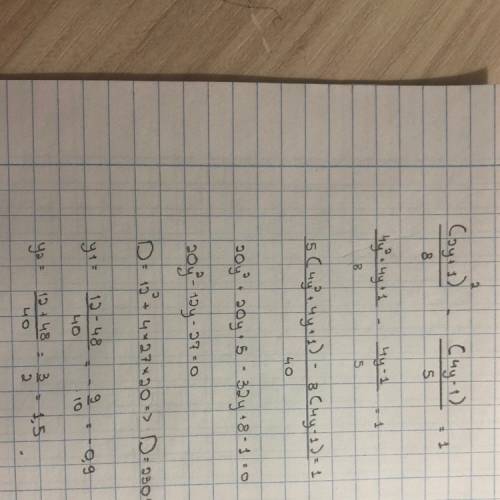 (2y+1)²/8 - (4y-1)/5 = 1
4y²+4y+1/8 - 4y-1/5 = 1
5(4y²+4y+1) - 8(4y-1)/40 = 1
20y²+20y+5-32y+8-1=0
20y²-12y-27=0
D=12²+4×27×20=> D=230
y1 = 12-48/40 = -9/10 = -0,9
y2 = 12+48/40 = 3/2 = 1,5.